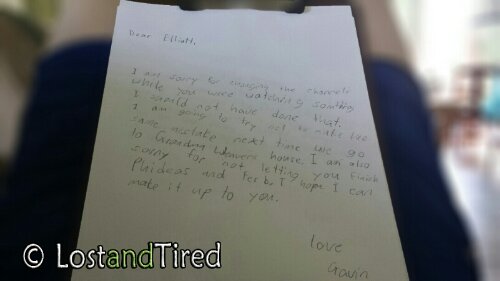 Dear Elliott,
I am sorry for changing the channel
while you were watching somthing
I should not have done that.
I am going to try not to make the
same mistake next time we go
to Grandma Weavers house. I am also
sorry for not letting you finish
Phideas and Ferb. I hope I can
make it up to you.
love
Gavin
© LostandTired